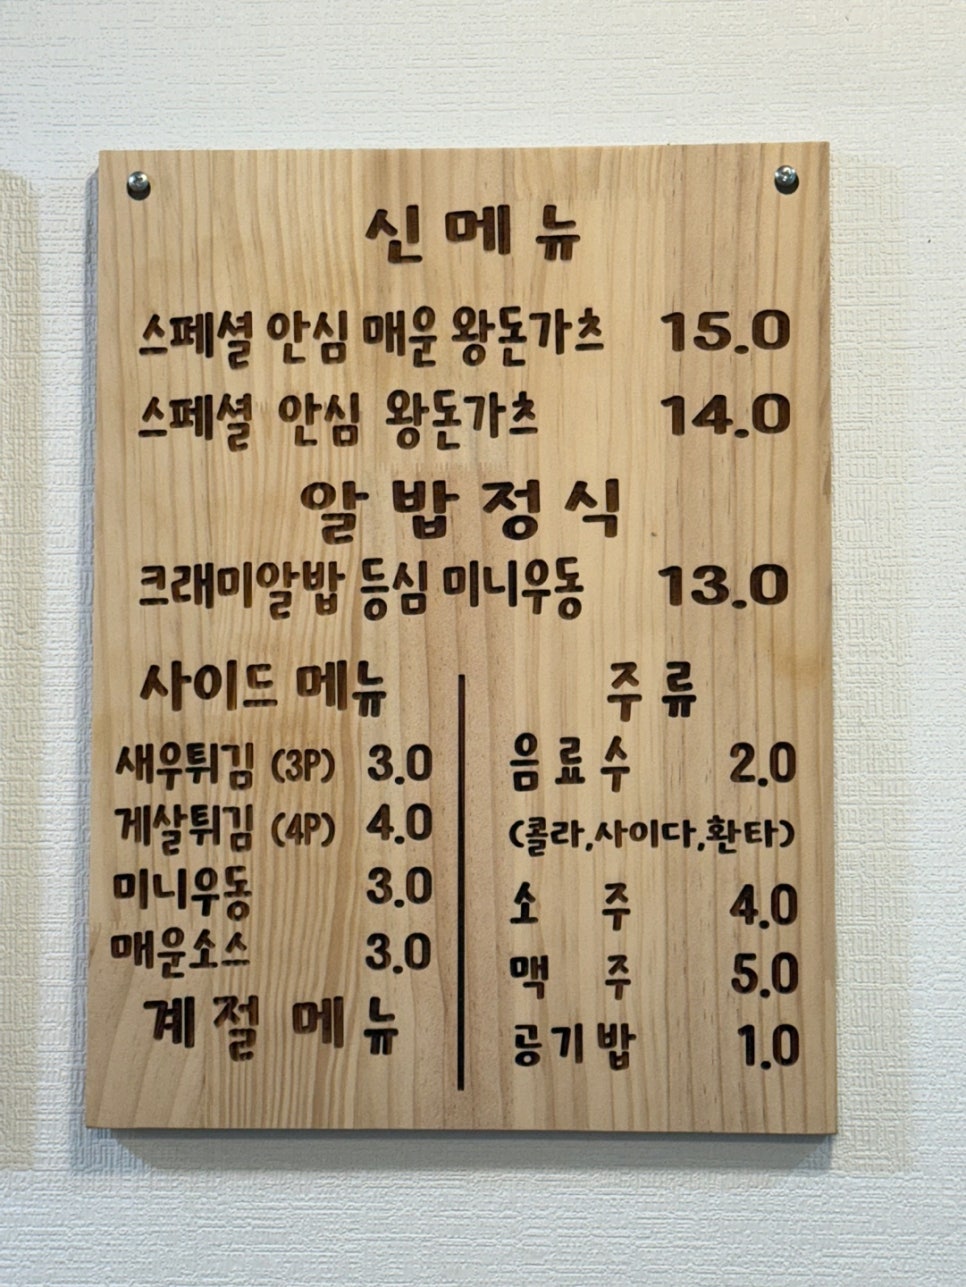 신메뉴
스페셜 안심 매운 왕돈가츠 15.0
스페셜 안심 왕돈가츠 14.0
알밥정식
크래미알밥 등심 미니우동 13.0
사이드 메뉴
새우튀김 (3P) 3.0
게살튀김 (4P) 4.0
미니우동 3.0
매운소스 3.0
계절 메뉴
주류
음료수 2.0
(콜라,사이다,환타)
소주 4.0
맥주 5.0
공기밥 1.0